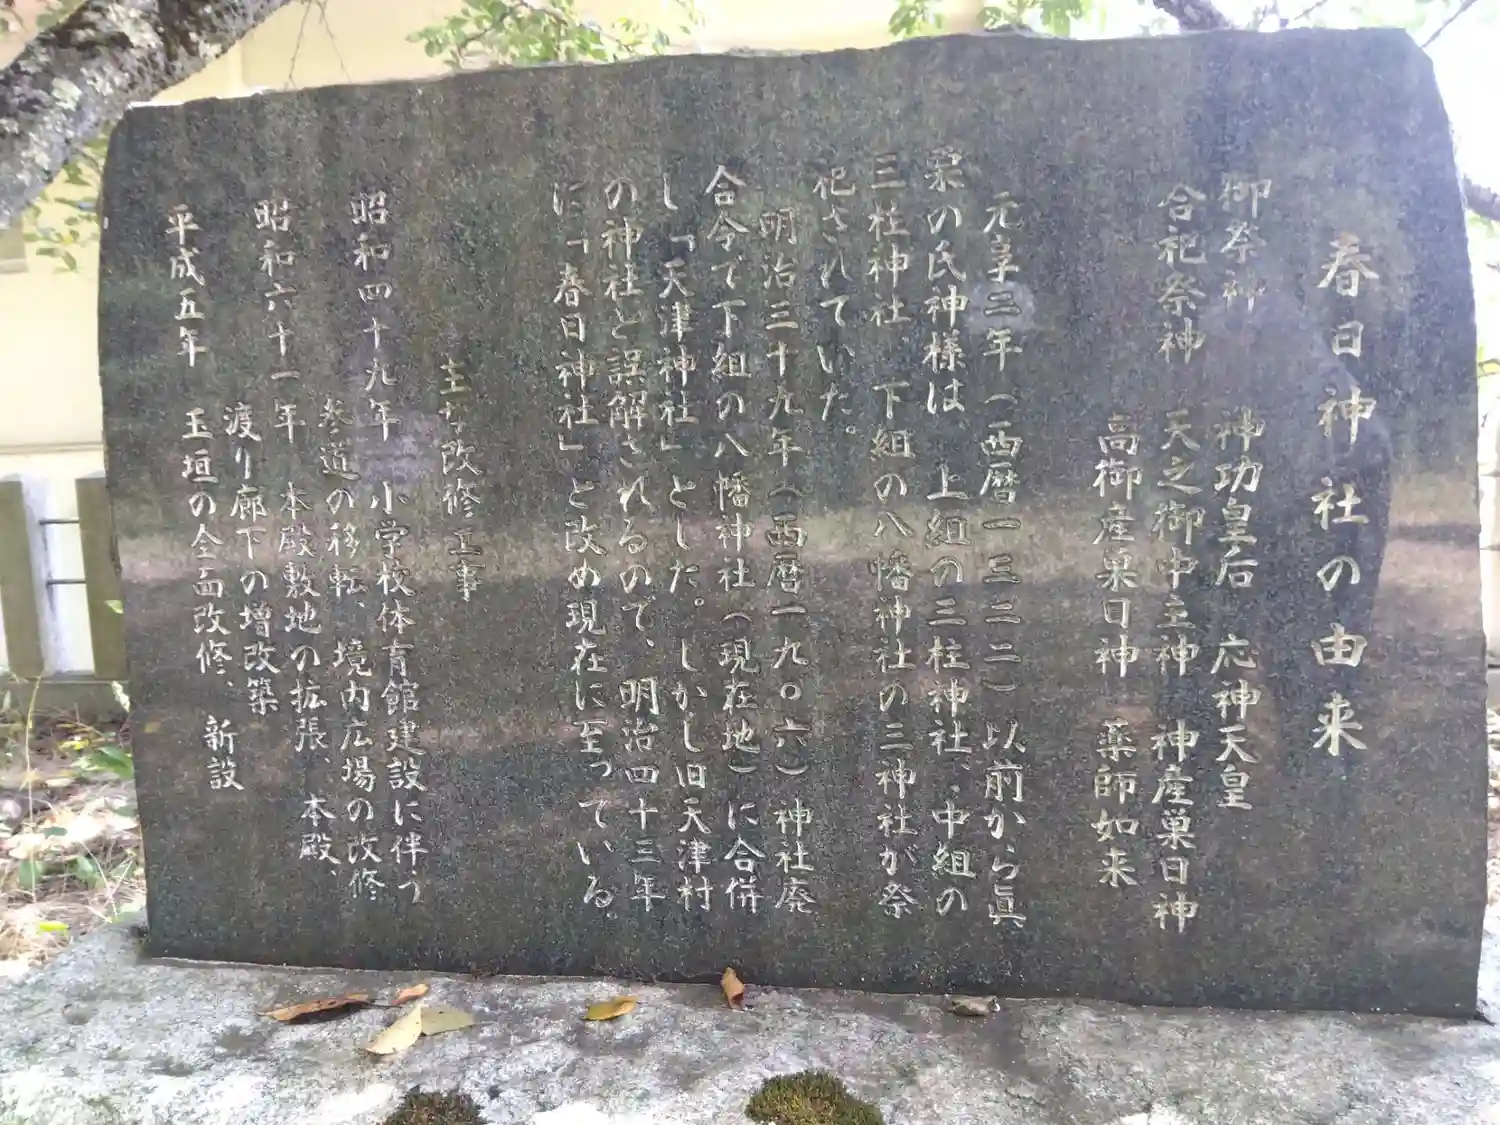 春日神社の由来
御祭神　神功皇后　応神天皇
合祀祭神　天之御中主神　神産巣日神
高御産巣日神　薬師如来
元享二年（西暦一三二二）以前から眞
菜の氏神様は、上組の三柱神社、中組の
三柱神社、下組の八幡神社の三神社が祭
祀されていた。
明治三十九年（西暦一九〇六）神社廃
合令で下組の八幡神社（現在地）に合併
し「天津神社」とした。しかし旧天津村
の神社と誤解されるので、明治四十三年
に「春日神社」と改め現在に至っている。
主な改修工事
昭和四十九年　小学校体育館建設に伴う
参道の移転、境内広場の改修
昭和六十一年　本殿敷地の拡張、本殿、
渡り廊下の増改築
平成五年　玉垣の全面改修、新設